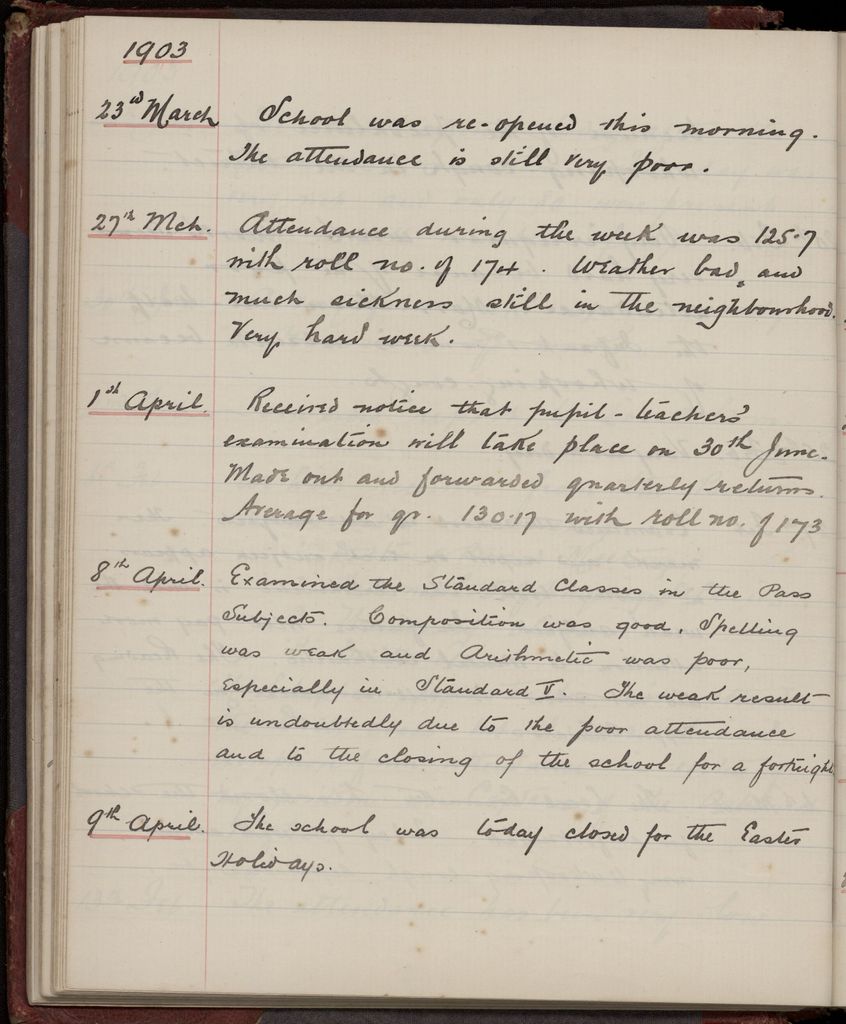 1903
23rd March School was re-opened this morning.
The attendance is still very poor.
27th Mch. Attendance during the week was 125.7
with roll no. of 174. Weather bad, and
much sickness still in the neighbourhood.
Very hard week.
1st April. Received notice that pupil-teachers'
examination will take place on 30th June.
Made out and forwarded quarterly returns.
Average for qr. 130.17 with roll no. of 173
8th April. Examined the Standard Classes in the Pass
Subjects. Composition was good, Spelling
was weak and Arithmetic was poor,
especially in Standard V. The weak result
is undoubtedly due to the poor attendance
and to the closing of the school for a fortnight
9th April. The school was today closed for the Easter
Holidays.